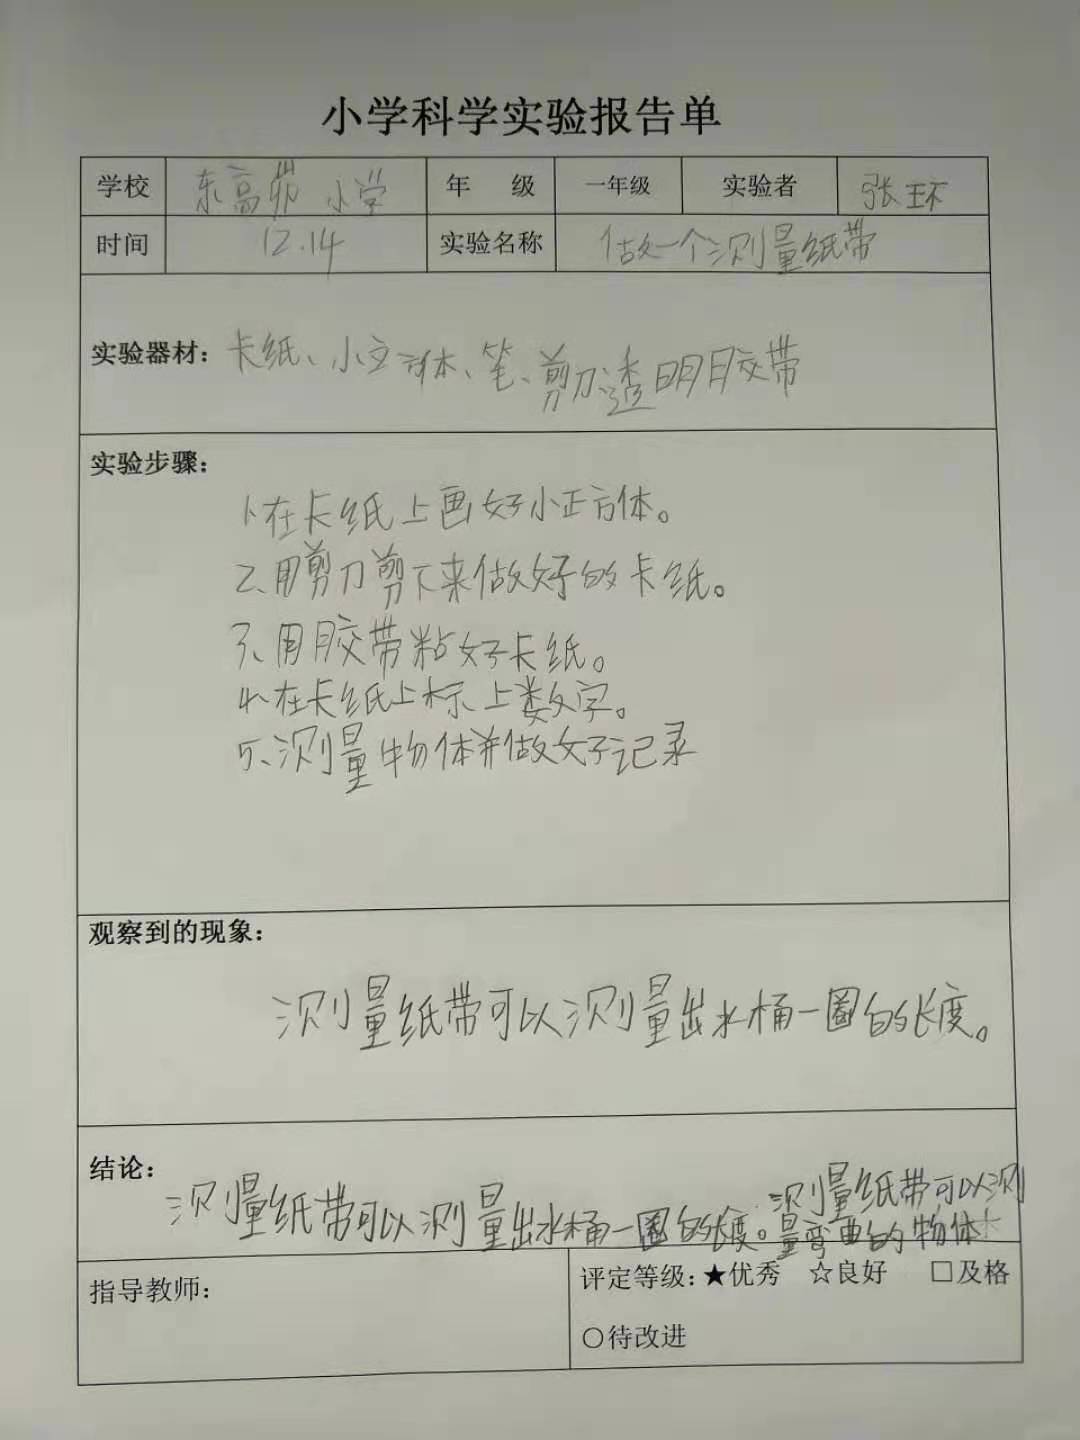 小学科学实验报告单
学校 东高茆小学 年 级 一年级 实验者 张环
时间 12.14 实验名称 做一个测量纸带
实验器材：卡纸、小立方体、笔、剪刀、透明胶带
实验步骤：
1、在卡纸上画好小正方体。
2、用剪刀剪下来做好的卡纸。
3、用胶带粘好卡纸。
4、在卡纸上标上数字。
5、测量物体并做好记录
观察到的现象：
测量纸带可以测量出水桶一圈的长度。
结论：
测量纸带可以测量出水桶一圈的长度。测量纸带可以测
量弯曲的物体
指导教师：
评定等级：★优秀 ☆良好 □及格
○待改进